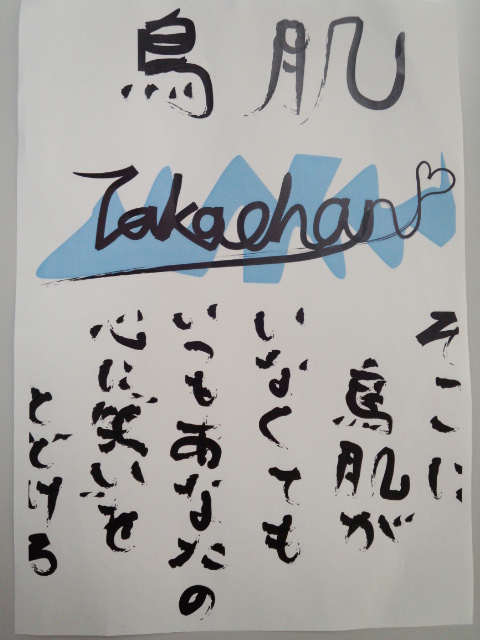 鳥肌
Takachan
そこに
鳥肌が
いなくても
いつもあなたの
心に笑いを
とどける